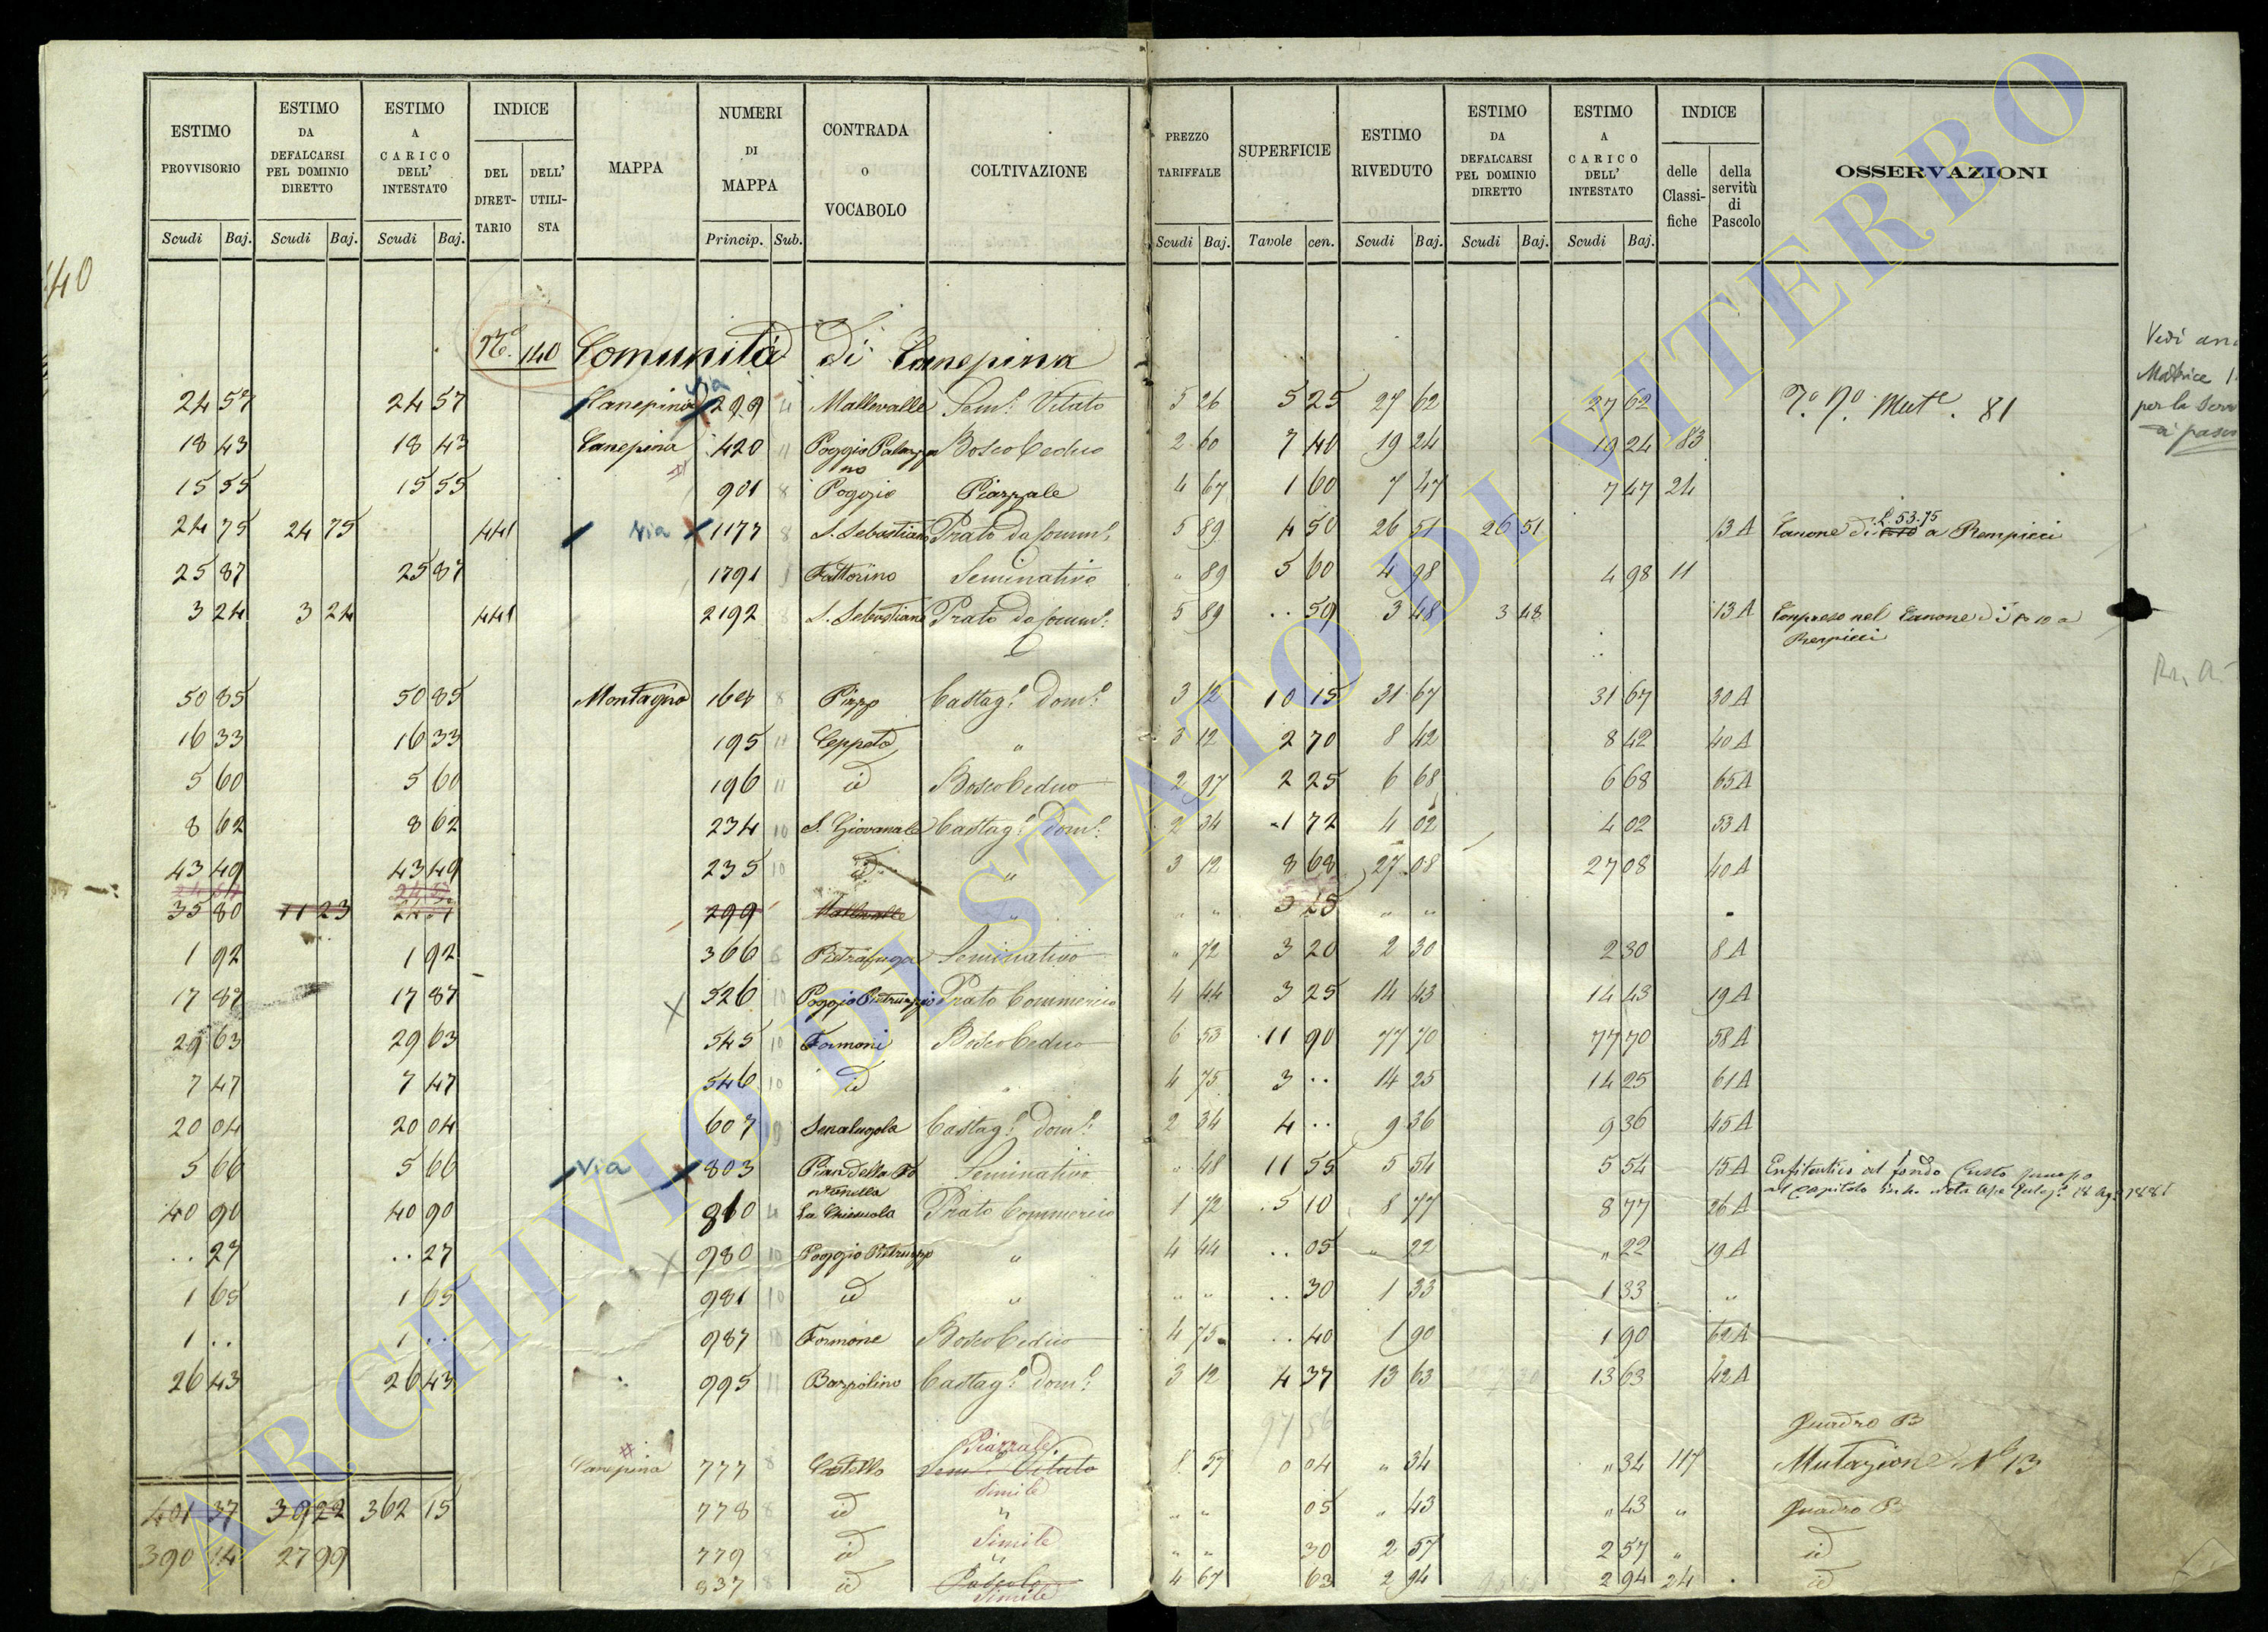 ESTIMO PROVVISORIO | ESTIMO DA DEFALCARSI PEL DOMINIO DIRETTO | ESTIMO A CARICO DELL' INTESTATO | INDICE DEL DIRETTARIO | DELL' UTILISTA | MAPPA | NUMERI DI MAPPA | CONTRADA o VOCABOLO | COLTIVAZIONE | PREZZO TARIFFALE | SUPERFICIE | ESTIMO RIVEDUTO | ESTIMO DA DEFALCARSI PEL DOMINIO DIRETTO | ESTIMO A CARICO DELL' INTESTATO | INDICE delle Classifiche | della servitù di Pascolo | OSSERVAZIONI
Scudi Baj. Scudi Baj. Scudi Baj. Princip. Sub. Scudi Baj. Tavole cen. Scudi Baj. Scudi Baj. Scudi Baj.
140
No. 140 Comunità di Canepina
Via
24 57 24 57 Canepina 299 4 Mallevalle Sem.o Vitato 5 26 5 25 27 62 27 62 Mut.e 81
18 43 18 43 Canepina 420 11 Poggio Palazzano Bosco Ceduo 2 60 7 40 19 24 19 24 83
15 55 15 55 901 8 Poggio Piazzale 4 67 1 60 7 47 7 47 24
24 75 24 75 441 Via 1177 8 S. Sebastiano Prato da 5 89 4 50 26 51 26 51 13 A Canone di L. 53.75 a Rempicci
25 87 25 87 1791 Fattorino Seminativo " 89 5 60 4 98 4 98 11
3 24 3 24 441 2192 8 S. Sebastiano Prato da 5 89 .. 59 3 48 3 48 13 A Compreso nel Canone di 10 a
Rempicci
50 85 50 85 Montagna 164 8 Pizzo Castag.o Dom.o 3 12 10 15 31 67 31 67 30 A
16 33 16 33 195 11 Ceppeta " 3 12 2 70 8 42 8 42 40 A
5 60 5 60 196 11 id Bosco Ceduo 2 97 2 25 6 68 6 68 65 A
8 62 8 62 234 10 S. Giovanale Castag.o Dom.o 2 34 1 72 4 02 4 02 53 A
43 49 43 49 235 10 id " 3 12 8 68 27 08 27 08 40 A
35 80 11 23 299 Mallevalle " " " 3 25 " "
1 92 1 92 366 6 Pietrafuga Seminativo " 72 3 20 2 30 2 30 8 A
17 87 17 87 526 10 Poggio Pietruzzo Prato Commercio 4 44 3 25 14 43 14 43 19 A
29 63 29 63 545 10 Formoni Bosco Ceduo 6 53 11 90 77 70 77 70 58 A
7 47 7 47 546 10 id " 4 75 3 .. 14 25 14 25 61 A
20 04 20 04 607 Castag.o Dom.o 2 34 4 .. 9 36 9 36 45 A
5 66 5 66 Via 803 Pian della Fontanella Seminativo " 48 11 55 5 54 5 54 15 A Enfiteutico al fondo
40 90 40 90 810 4 La Chiesuola Prato Commercio 1 72 5 10 8 77 8 77 26 A al Capitolo
.. 27 .. 27 980 10 Poggio Pietruzzo " 4 44 .. 05 " 22 " 22 19 A
1 65 1 65 981 10 id " " " .. 30 1 33 1 33 "
1 .. 1 .. 987 10 Formone Bosco Ceduo 4 75 .. 40 1 90 1 90 62 A
26 43 26 43 995 11 Bozzolino Castag.o Dom.o 3 12 4 37 13 63 13 63 42 A
97 56 Quadro B
Piazzale
Canepina 777 8 Castello Sem.o Vitato 8 57 0 04 " 34 " 34 117 Mutazione N.o 13
Simile
401 37 39 22 362 15 778 8 id " " " 05 " 43 " 43 " Quadro B
Simile
390 14 27 99 779 8 id " " " 30 2 57 2 57 " id
837 8 id Pascolo 4 67 63 2 94 2 94 24 id
Simile
Vedi
Matrice
per la
di
ARCHIVIO DI STATO DI VITERBO